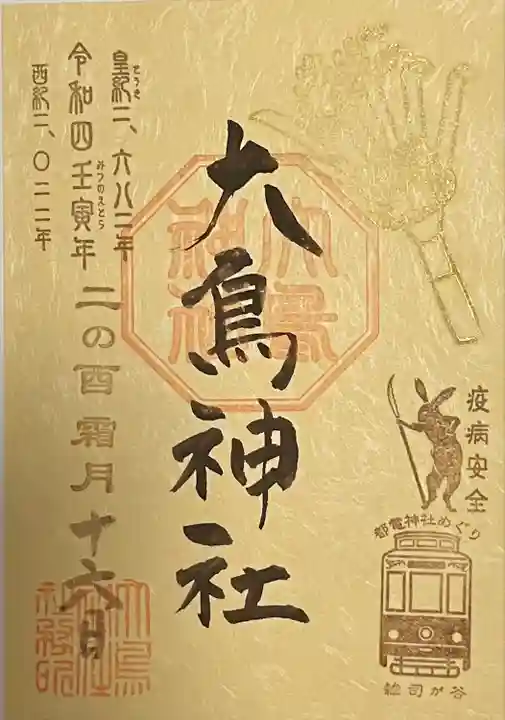 疫病安全
都電神社めぐり
雑司が谷
大鳥神社
皇紀二、六八二年
こうき
令和四壬寅年
みつのえとら
西紀二、〇二二年
二の酉霜月十六日
大鳥
神社